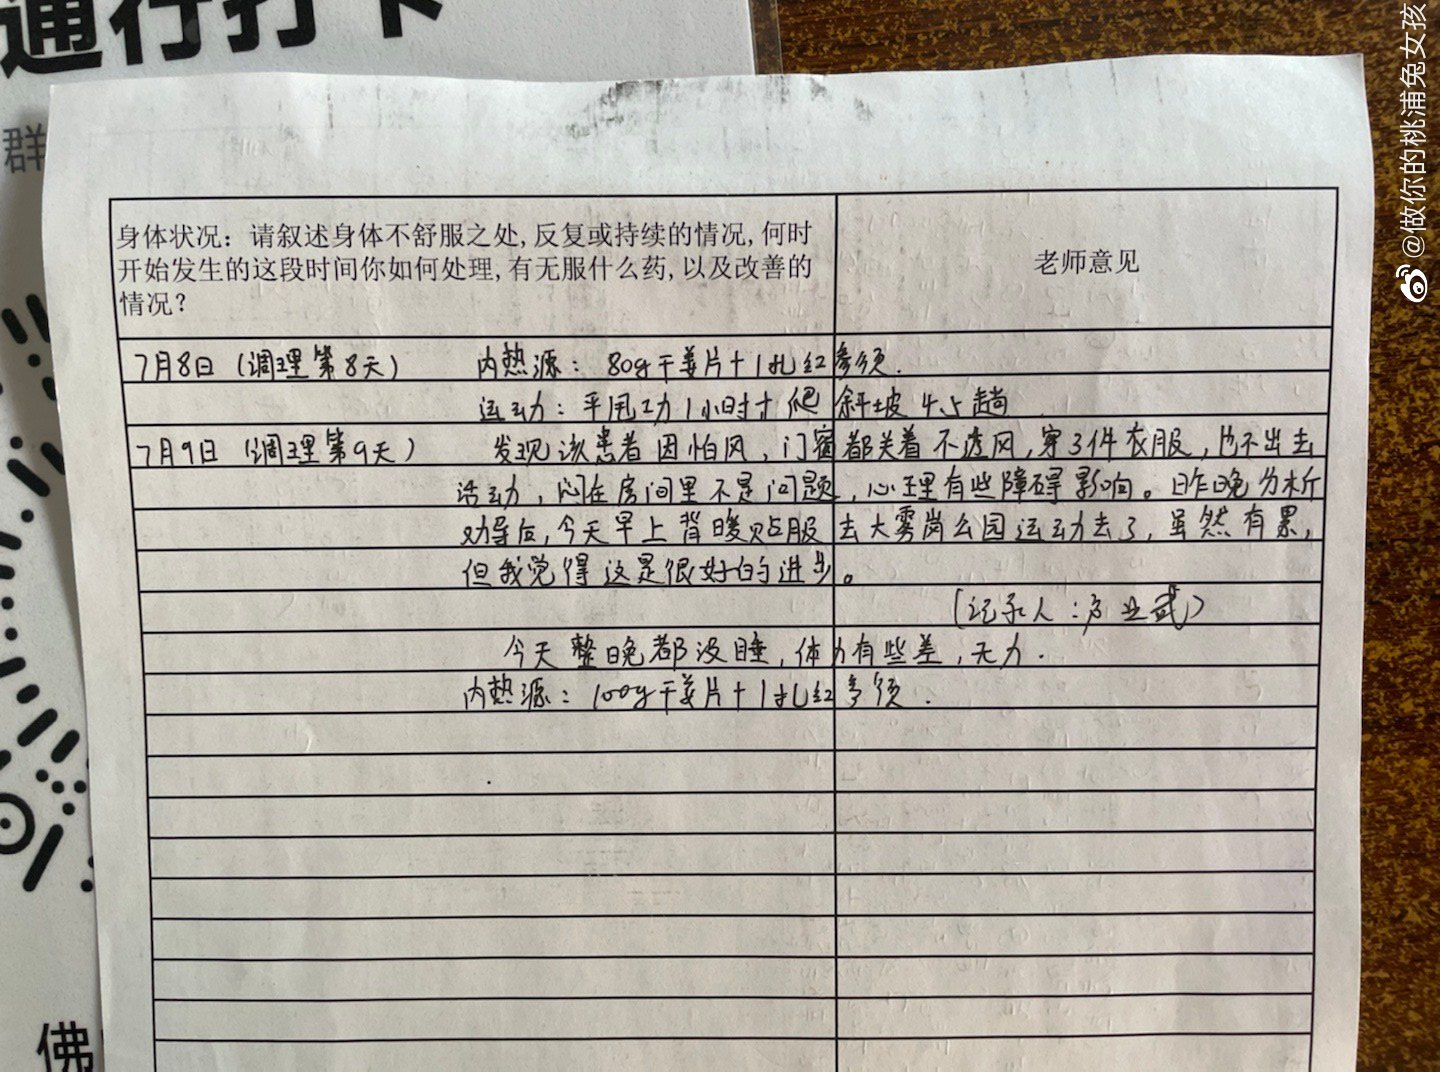 通行打卡
群
@做你的桃浦兔女孩
身体状况：请叙述身体不舒服之处，反复或持续的情况，何时
开始发生的这段时间你如何处理，有无服什么药，以及改善的
情况？
老师意见
7月8日（调理第8天） 内热源：80g干姜片+1扎红参须.
运动：平甩功1小时+爬斜坡4.5趟
7月9日（调理第9天） 发现该患者因怕风，门窗都关着不透风，穿3件衣服，也不出去
活动，闷在房间里不是问题，心理有些障碍影响。昨晚分析
劝导后，今天早上背暖贴服去大雾岗公园运动去了，虽然有累，
但我觉得这是很好的进步。
（记录人：卢业武）
今天整晚都没睡，体力有些差，无力.
内热源：100g干姜片+1扎红参须.
佛